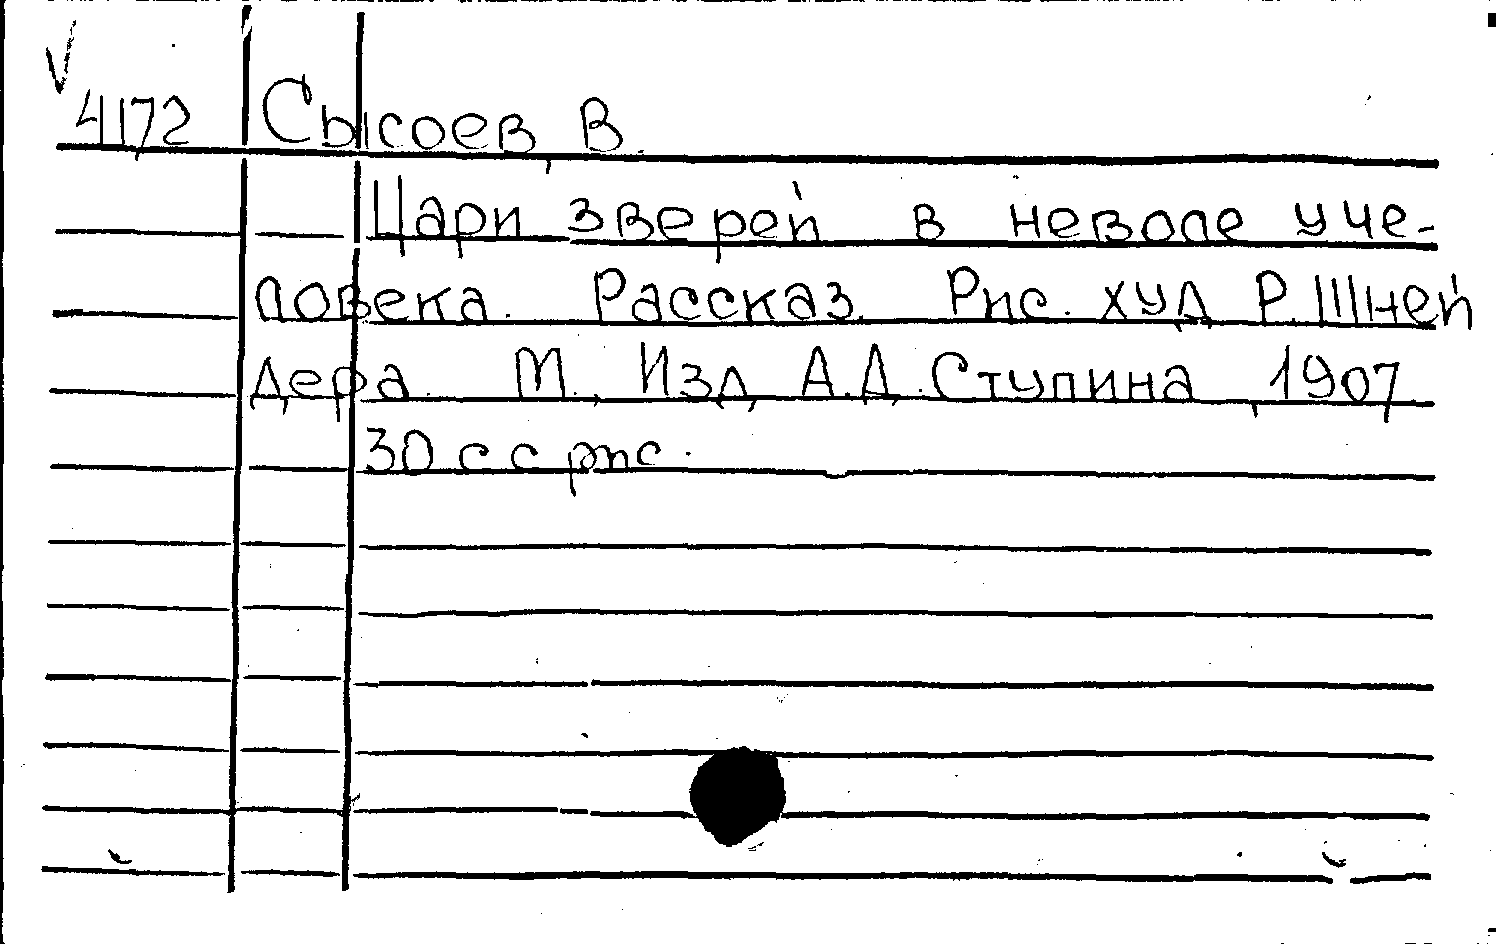 4172 Сысоев, В.
Цари зверей в неволе у че-
ловека. Рассказ. Рис. худ. Р. Шней
дера. М., Изд. А.Д. Ступина, 1907.
30 с с рис.